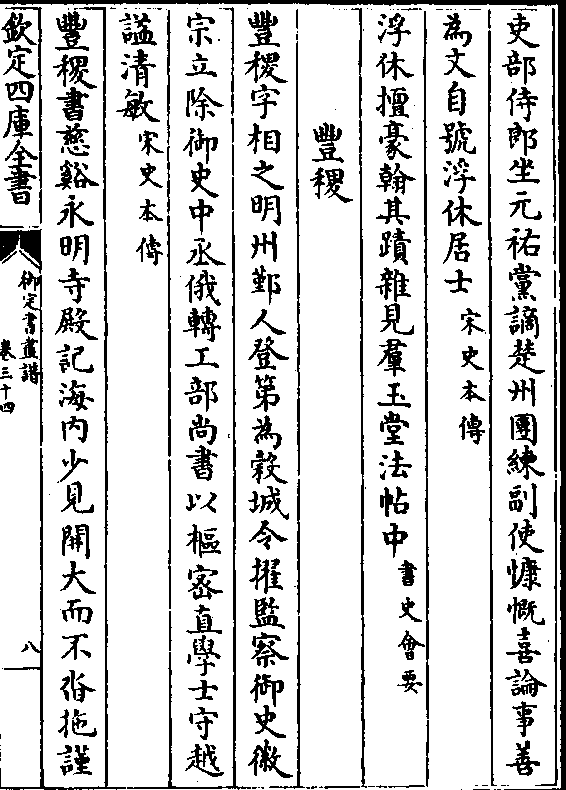 吏部侍郎坐元祐黨謫楚州團練副使慷慨喜論事善
為文自號浮休居士宋史本傳
浮休擅豪翰其蹟雜見羣玉堂法帖中書史會要
豐稷
豐稷字相之明州鄞人登第為榖城令擢監察御史徽
宗立除御史中丞俄轉工部尚書以樞密直學士守越
諡清敏宋史本傳
豐稷書慈谿永明寺殿記海内少見開大而不沓拖謹
欽定四庫全書
御定書畫譜
卷三十四
八